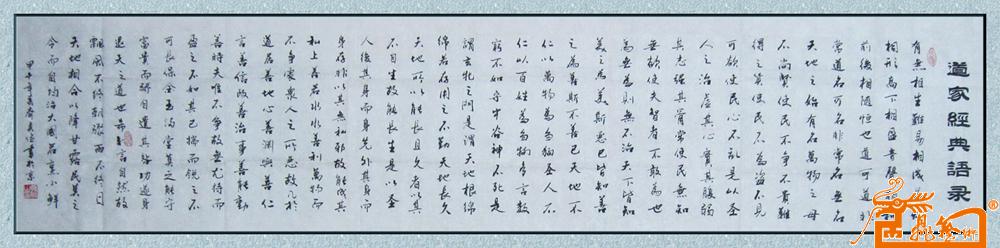 道家經典語录
有無相生難易相成長
相形高下相盈音聲相和
前後相隨恒也道可道非
常道名可名非常名無名
天地之始有名萬物之母
不尚賢使民不爭不貴難
得之貨使民不為盜不見
可欲使民心不亂是以圣
人之治虛其心實其腹弱
其志強其骨常使民無知
無欲使夫智者不敢為也
為無為則無不治天下皆知
美之為美斯惡已皆知善
之為善斯不善已天地不
仁以萬物為芻狗圣人不
仁以百姓為芻狗多言數
窮不如守中谷神不死是
謂玄牝之門是謂天地根綿
綿若存用之不勤天地長久
天地所以能長且久者以其
不自生故能長生是以圣
人後其身而身先外其身而
身存非以其無私邪故能成其
私上善若水水善利萬物而
不爭處衆人之所惡故幾於
道居善地心善淵與善仁
言善信政善治事善能動
善時夫唯不爭故無尤持而
盈之不如其已揣而銳之不
可長保金玉滿堂莫之能守
富貴而驕自遺其咎功遂身
退天之道也希言自然故
飄風不終朝驟雨不終日
天地相合以降甘露民莫之
令而自均治大國若烹小鮮
甲午年 書於京